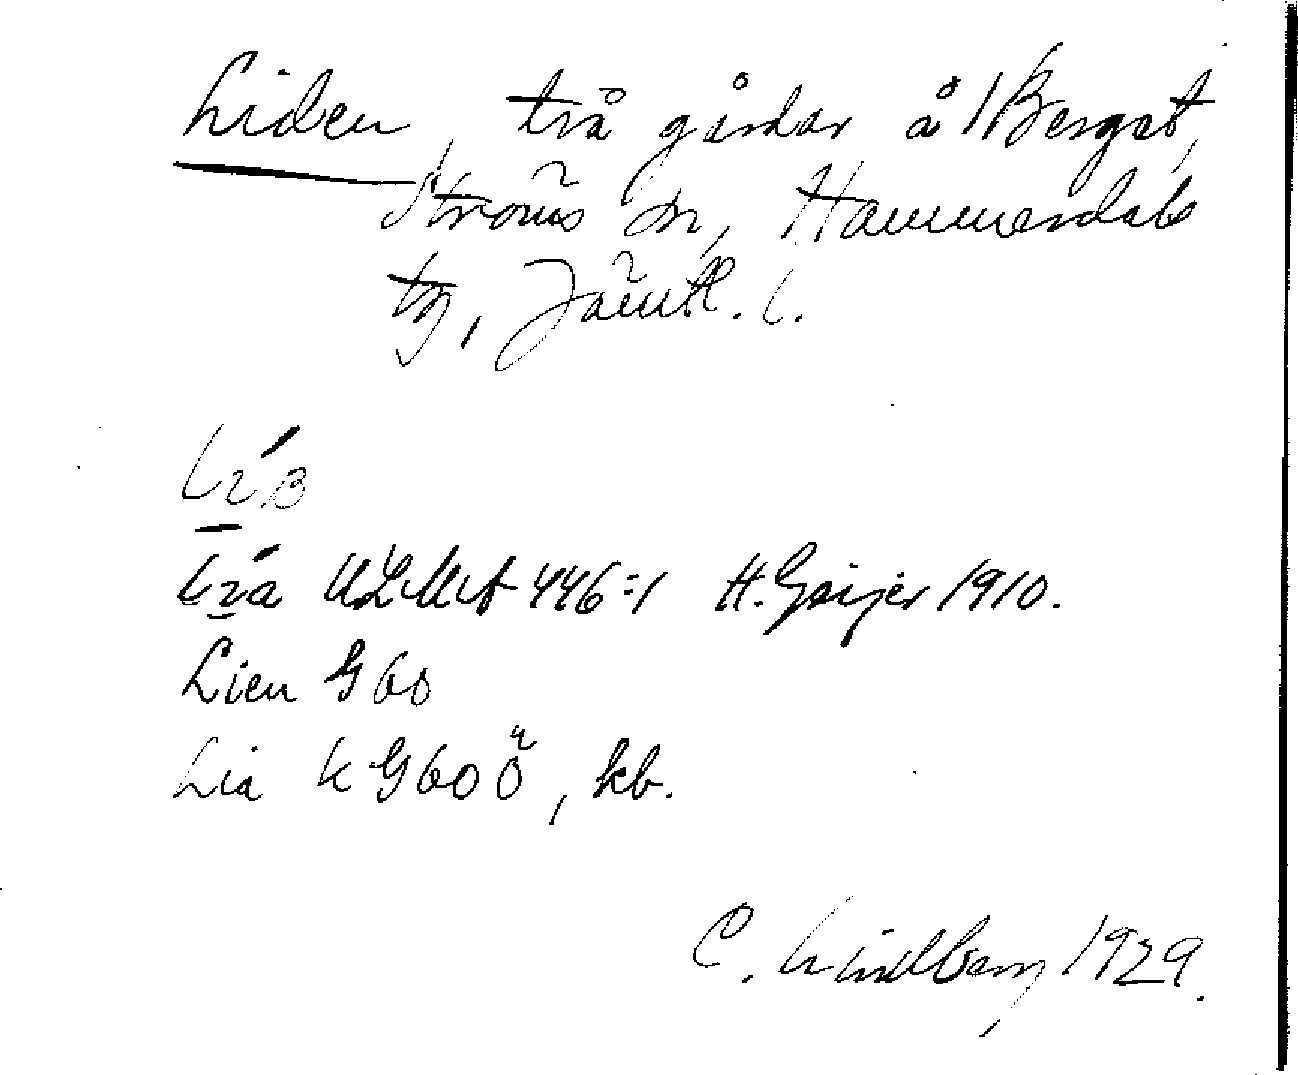 Liden, två gårdar å Berget,
Ströms sn, Hammerdals
tg, Jämtl. l.
ULMA 446:1 H. Geijer 1910.
Lien G 60
Lia k G 60 Ö, kb.
C. Lindberg 1929.